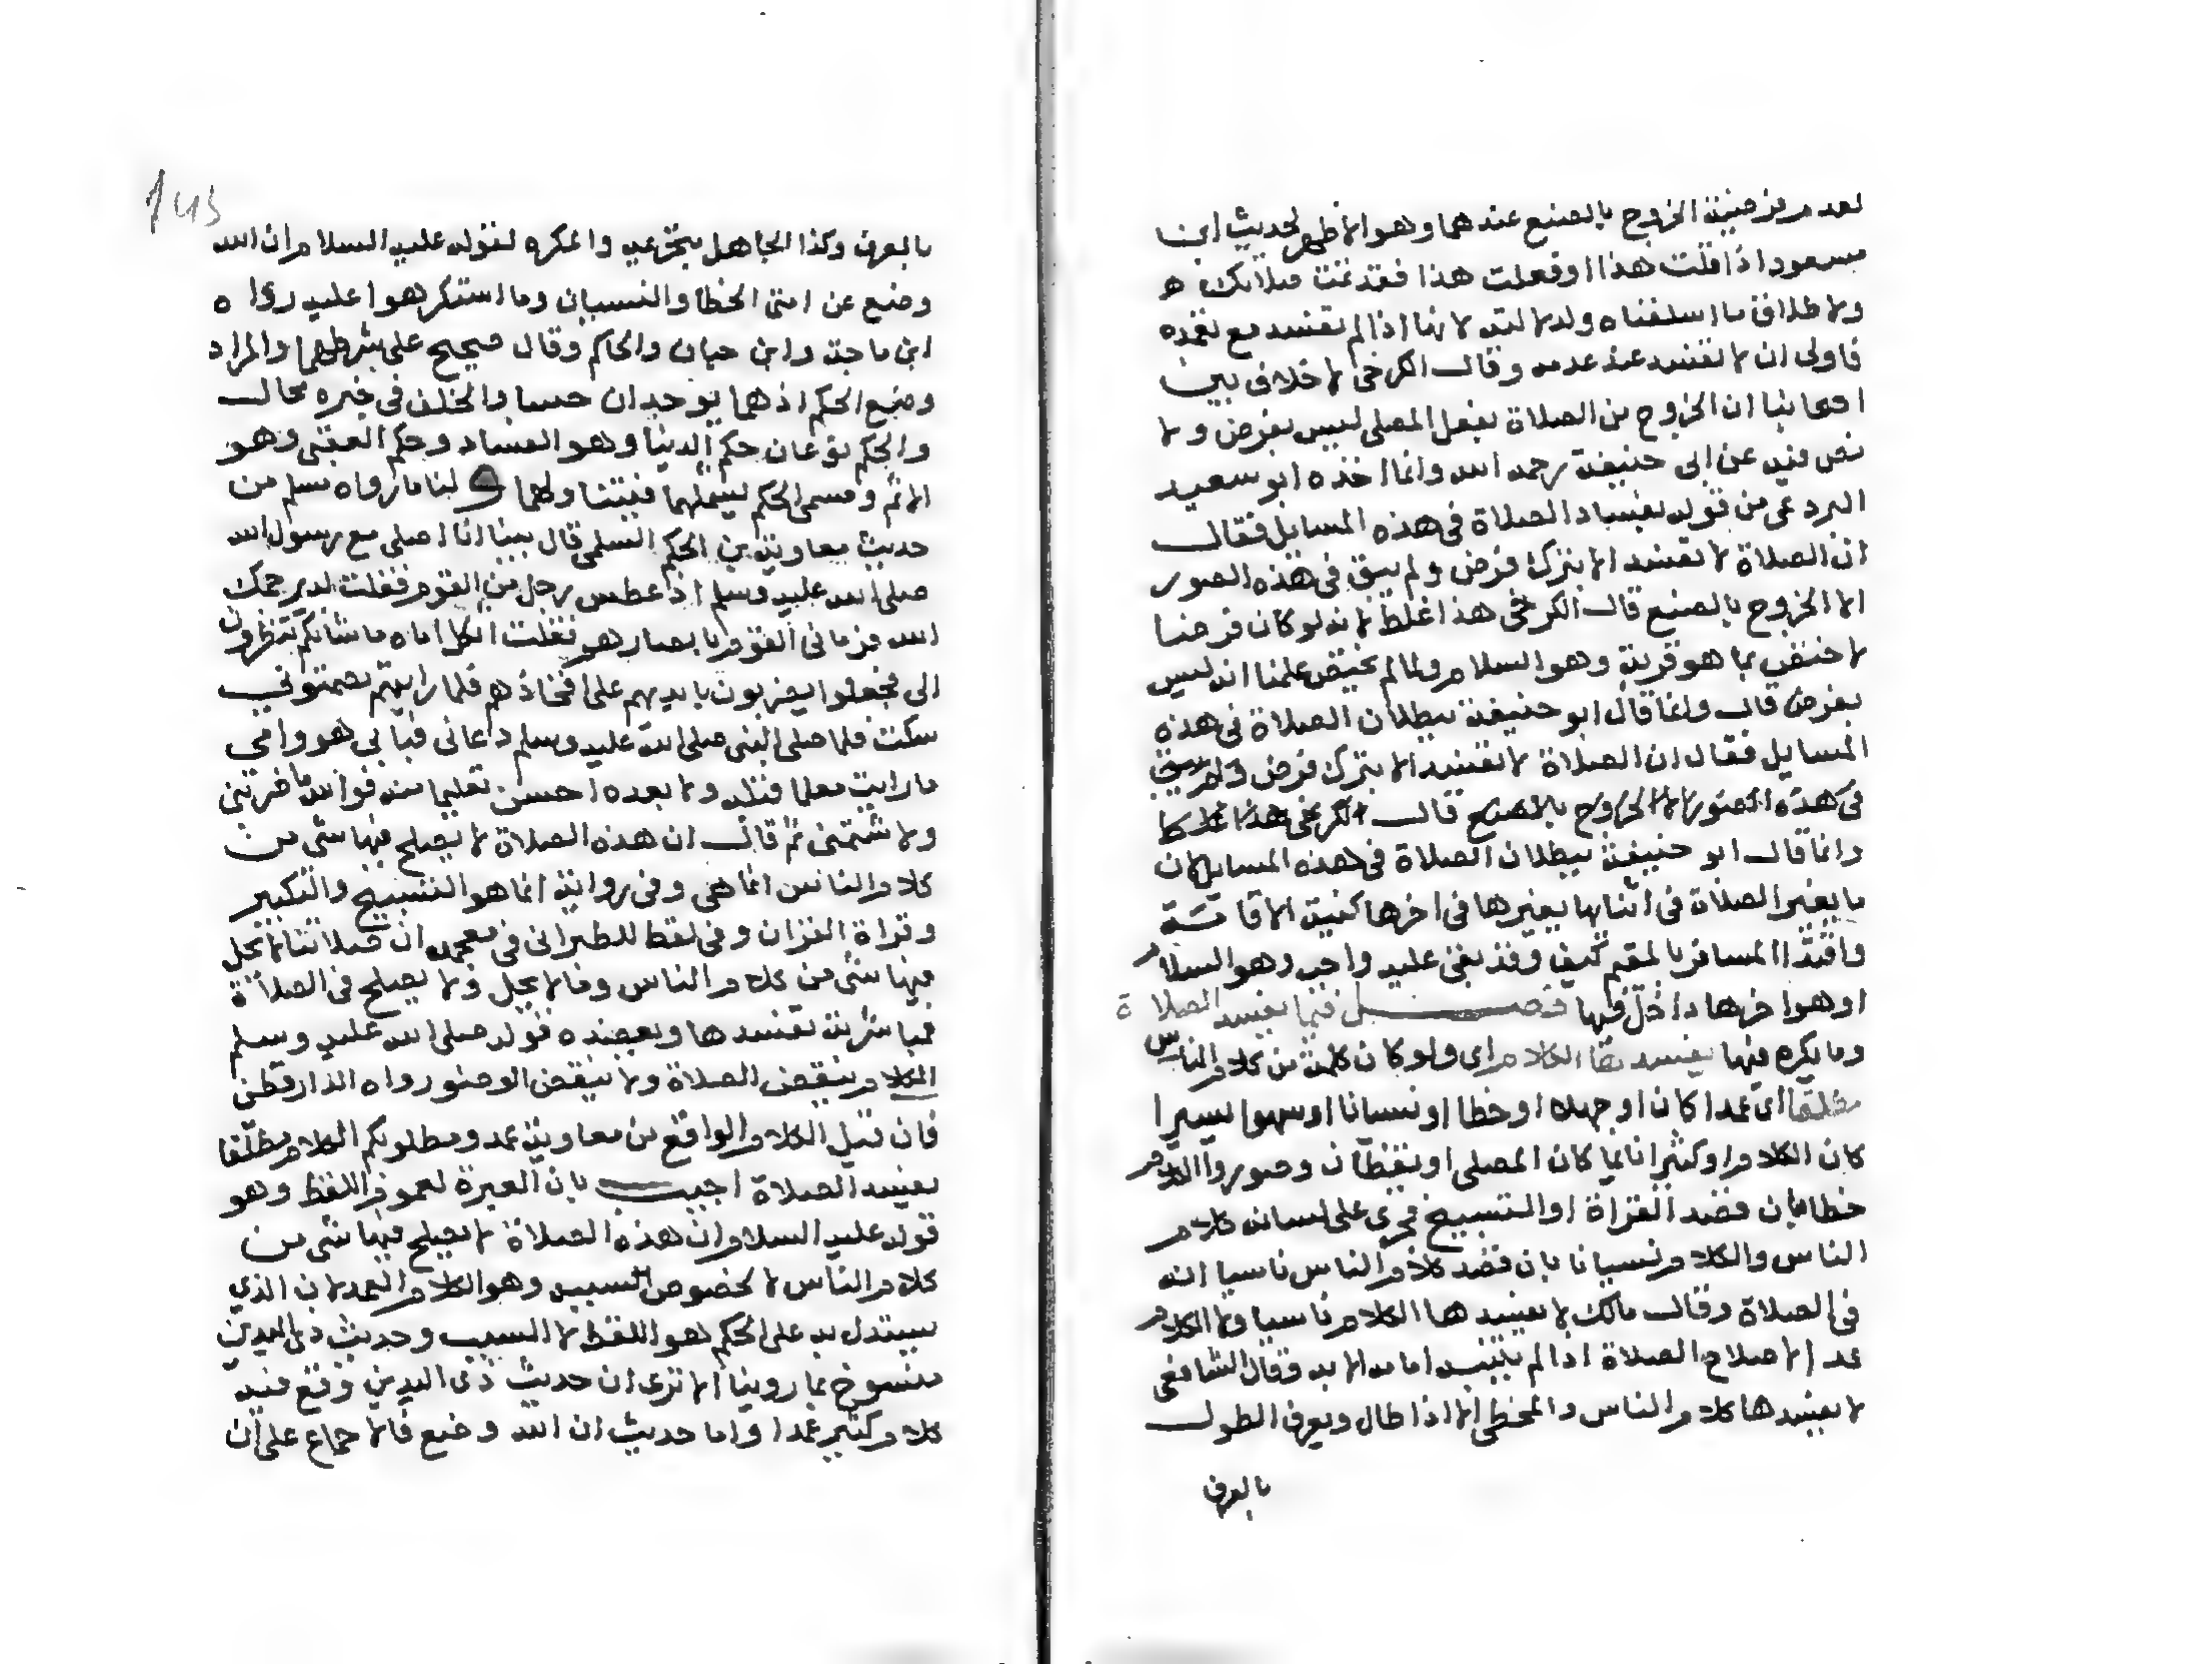 لعدم فرضية الخروج بالصنع عندهما وهو الاظهر لحديث ابن
مسعود اذا قلت هذا او فعلت هذا فقد تمت صلاتك ه
ولاطلاق ما اسلفناه ولدلالته لانها اذا لم تفسد مع تعمده
فاولى ان لا تفسد عند عدمه وقال الكرخي لا خلاف بين
اصحابنا ان الخروج من الصلاة بفعل المصلى ليس بفرض ولا
نص فيه عن ابى حنيفة رحمه الله وانما اخذه ابو سعيد
البردعى من قوله بفساد الصلاة فى هذه المسايل فقال
ان الصلاة لا تفسد الا بترك فرض ولم يبق فى هذه الصور
الا الخروج بالصنع قال الكرخى هذا غلط لانه لو كان فرضا
لاختص بما هو قربة وهو السلام ولما لم يختص علمنا انه ليس
بفرض قال وانما قال ابو حنيفة ببطلان الصلاة فى هذه
المسايل فقال ان الصلاة لا تفسد الا بترك فرض ولم يبق
فى هذه الصور الا الخروج بالصنع قال الكرخى هذا غلط
وانما قال ابو حنيفة ببطلان الصلاة فى هذه المسايل لان
ما يغير الصلاة فى اثنائها يغيرها فى اخرها كنية الاقامة
واقتدا المسافر بالمقيم كيف وقد بقى عليه واجب وهو السلام
او هو اخرها داخل فيها فصل فيما يفسد الصلاة
وما يكره فيها يفسدها الكلام اى ولو كان كلمة من كلام الناس
مطلقا اى عمدا كان او جهلا او خطا او نسيانا او سهوا يسيرا
كان الكلام او كثيرا نايما كان المصلى او يقظان وصوروا الكلام
خطا بان قصد القراة او التسبيح فجرى على لسانه كلام
الناس والكلام نسيانا بان قصد كلام الناس ناسيا انه
فى الصلاة وقال مالك لا يفسدها الكلام ناسيا ولا الكلام
عمدا لاصلاح الصلاة اذا لم ينتبه امامه الا به وقال الشافعى
لا يفسدها كلام الناس والمخطى الا اذا طال ويعرف الطول
بالعرف
بالعرف وكذا الجاهل بتحريمه والمكره لقوله عليه السلام ان الله
وضع عن امتى الخطا والنسيان وما استكرهوا عليه رواه
ابن ماجة وابن حبان والحاكم وقال صحيح على شرطهما والمراد
وضع الحكم اذ هما يوجدان حسا والخلف فى خبره محال
والحكم نوعان حكم الدنيا وهو الفساد وحكم العقبى وهو
الاثم ومسمى الحكم يشملهما فيتناولهما و لنا ما رواه مسلم من
حديث معاوية بن الحكم السلمى قال بينا انا اصلى مع رسول الله
صلى الله عليه وسلم اذ عطس رجل من القوم فقلت له يرحمك
الله فرمانى القوم بابصارهم فقلت واثكل اماه ما شانكم تنظرون
الى فجعلوا يضربون بايديهم على افخاذهم فلما رايتهم يصمتونى
سكت فلما صلى النبى صلى الله عليه وسلم دعانى فبابى هو وامى
ما رايت معلما قبله ولا بعده احسن تعليما منه فوالله ما ضربنى
ولا شتمنى ثم قال ان هذه الصلاة لا يصلح فيها شى من
كلام الناس انما هى وفى رواية انما هو التسبيح والتكبير
وقراة القران وفى لفظ للطبرانى فى معجمه ان صلاتنا لا يحل
فيها شى من كلام الناس وما لا يحل ولا يصلح فى الصلاة
فمباشرته تفسدها ويعضده قوله صلى الله عليه وسلم
الكلام ينقض الصلاة ولا ينقض الوضو رواه الدارقطنى
فان قيل الكلام الواقع من معاوية عمد ومطلوبكم الكلام مطلقا
يفسد الصلاة اجيب بان العبرة لعموم اللفظ وهو
قوله عليه السلام ان هذه الصلاة لا يصلح فيها شى من
كلام الناس لا لخصوص السبب وهو الكلام العمد لان الذي
يستدل به على الحكم هو اللفظ لا السبب وحديث ذى اليدين
منسوخ بما روينا الا ترى ان حديث ذى اليدين وقع فيه
كلام كثير عمدا واما حديث ان الله وضع فالاجماع على ان